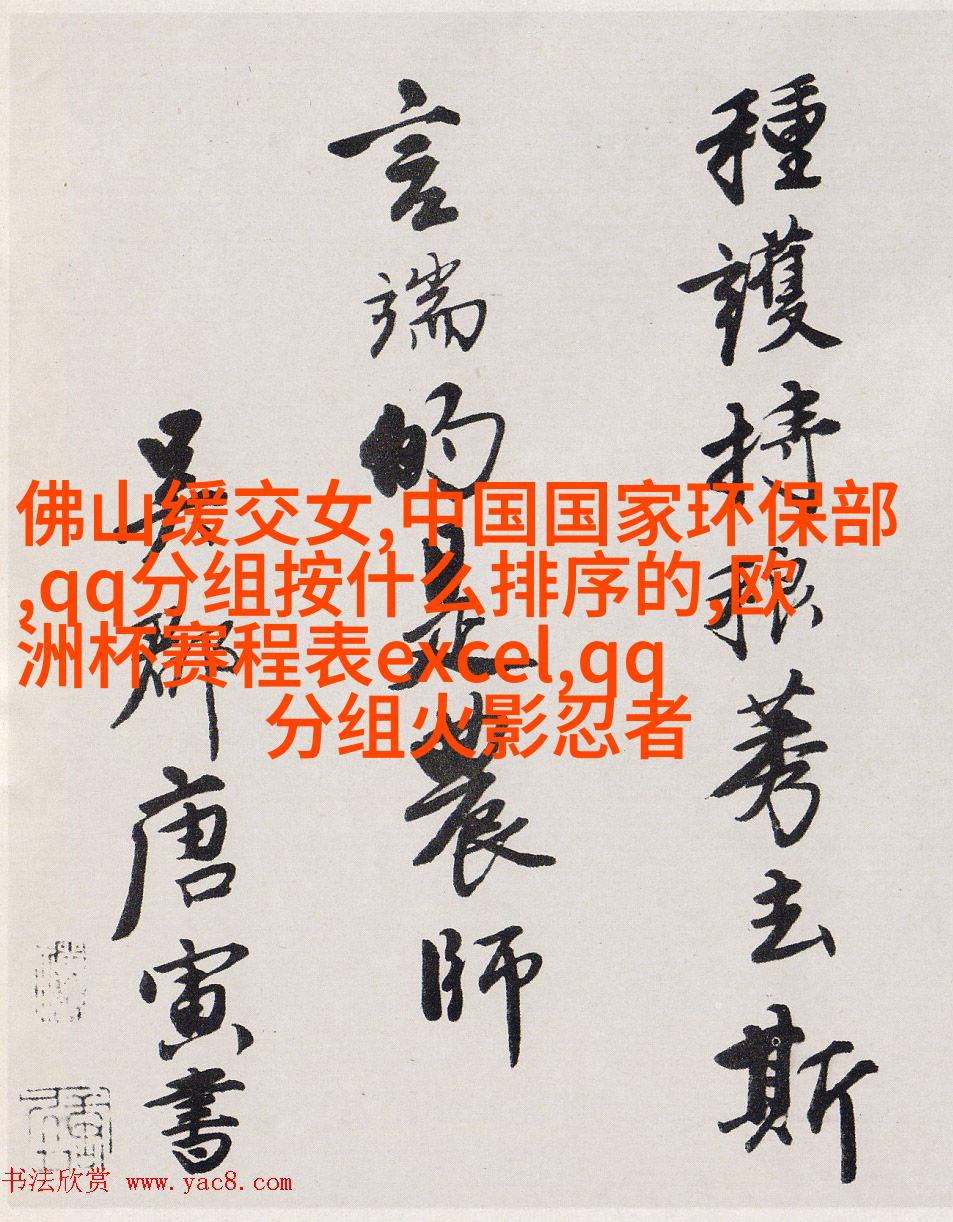 種護持稂莠去斯
言端的是農師
吳郡唐寅書
佛山缓交女,中国国家环保部
,qq分组按什么排序的,欧
洲杯赛程表excel,qq
分组火影忍者
书法欣赏 www.yac8.com